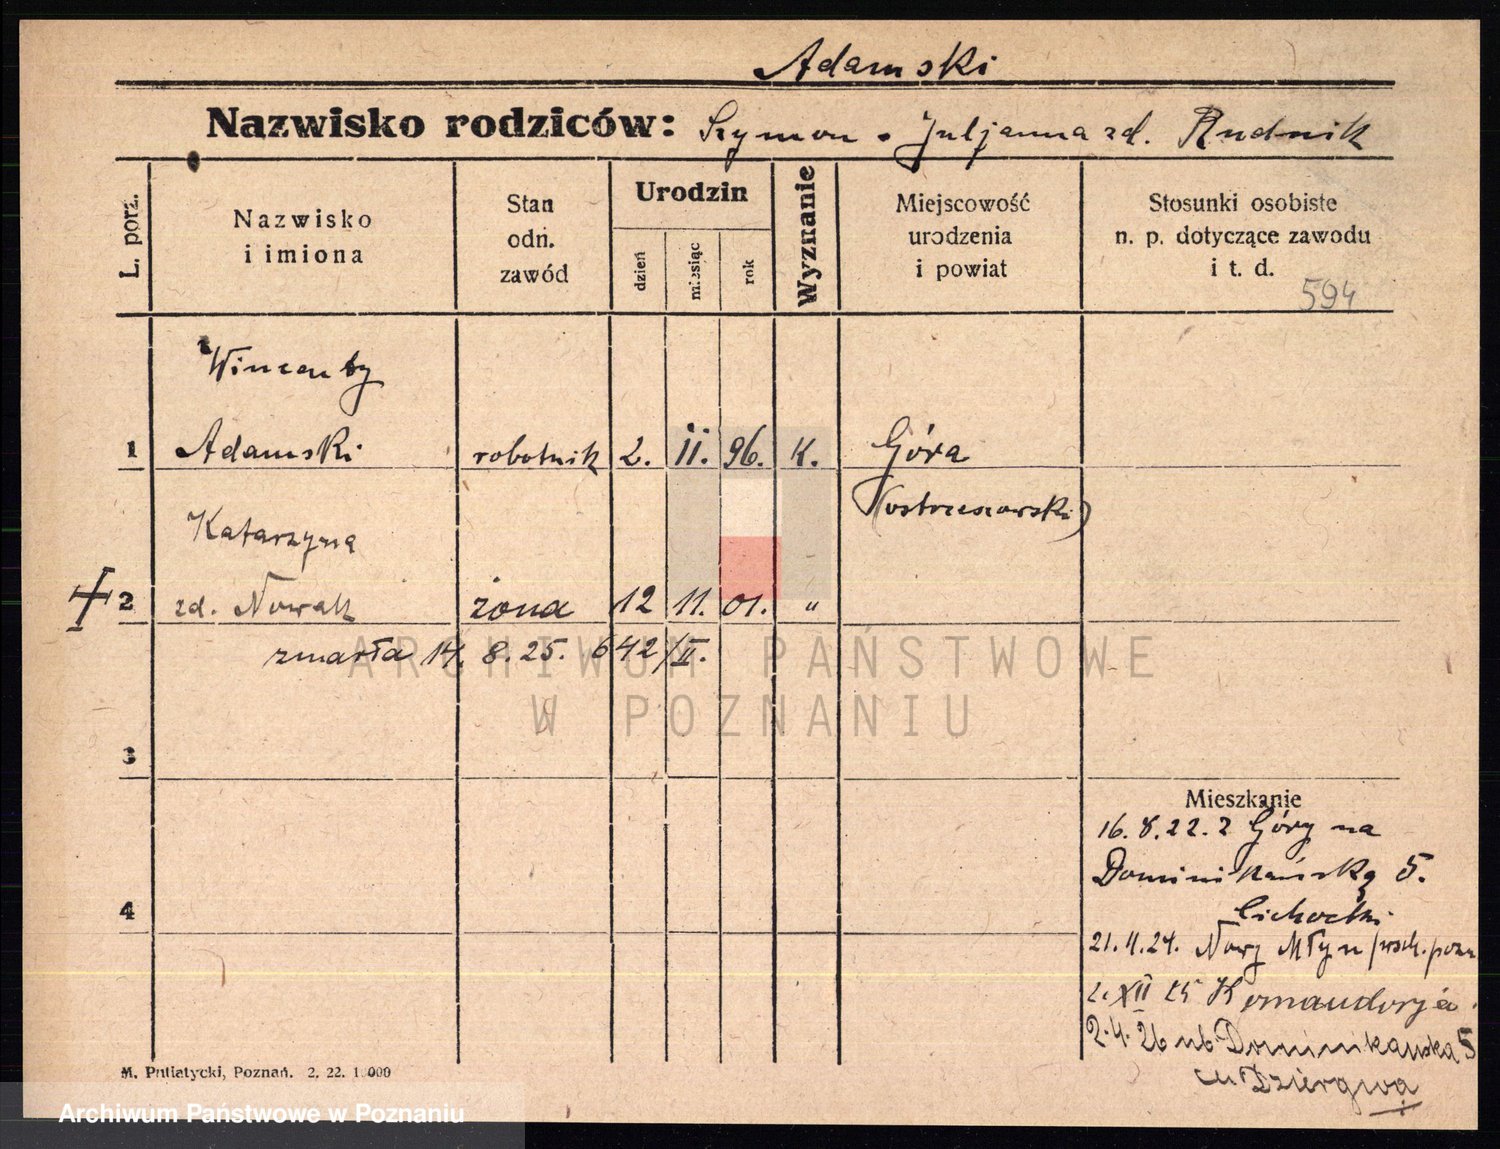 Adamski
Nazwisko rodziców: Szymon - Juljanna zd. Rudnik
L. porz.
Nazwisko
i imiona
Stan
odn.
zawód
Urodzin
dzień
miesiąc
rok
Wyznanie
Miejscowość
urodzenia
i powiat
Stosunki osobiste
n. p. dotyczące zawodu
i t. d.
594
Wincenty
1 Adamski robotnik 2. 11. 96. K. Góra
(ostrzeszowski)
Katarzyna
2 zd. Nowak żona 12 11. 01. "
zmarła 14. 8. 25. 642/II.
ARCHIWUM PAŃSTWOWE
W POZNANIU
3
Mieszkanie
16. 8. 22. z Góry na
Dominikańską 5.
Cichocki
4
21. 11. 24. Nowy Młyn
2. XII 25 Komandorja
2. 4. 26 Dominikańska 5
M. Putiatycki, Poznań. 2. 22. 10000
Archiwum Państwowe w Poznaniu